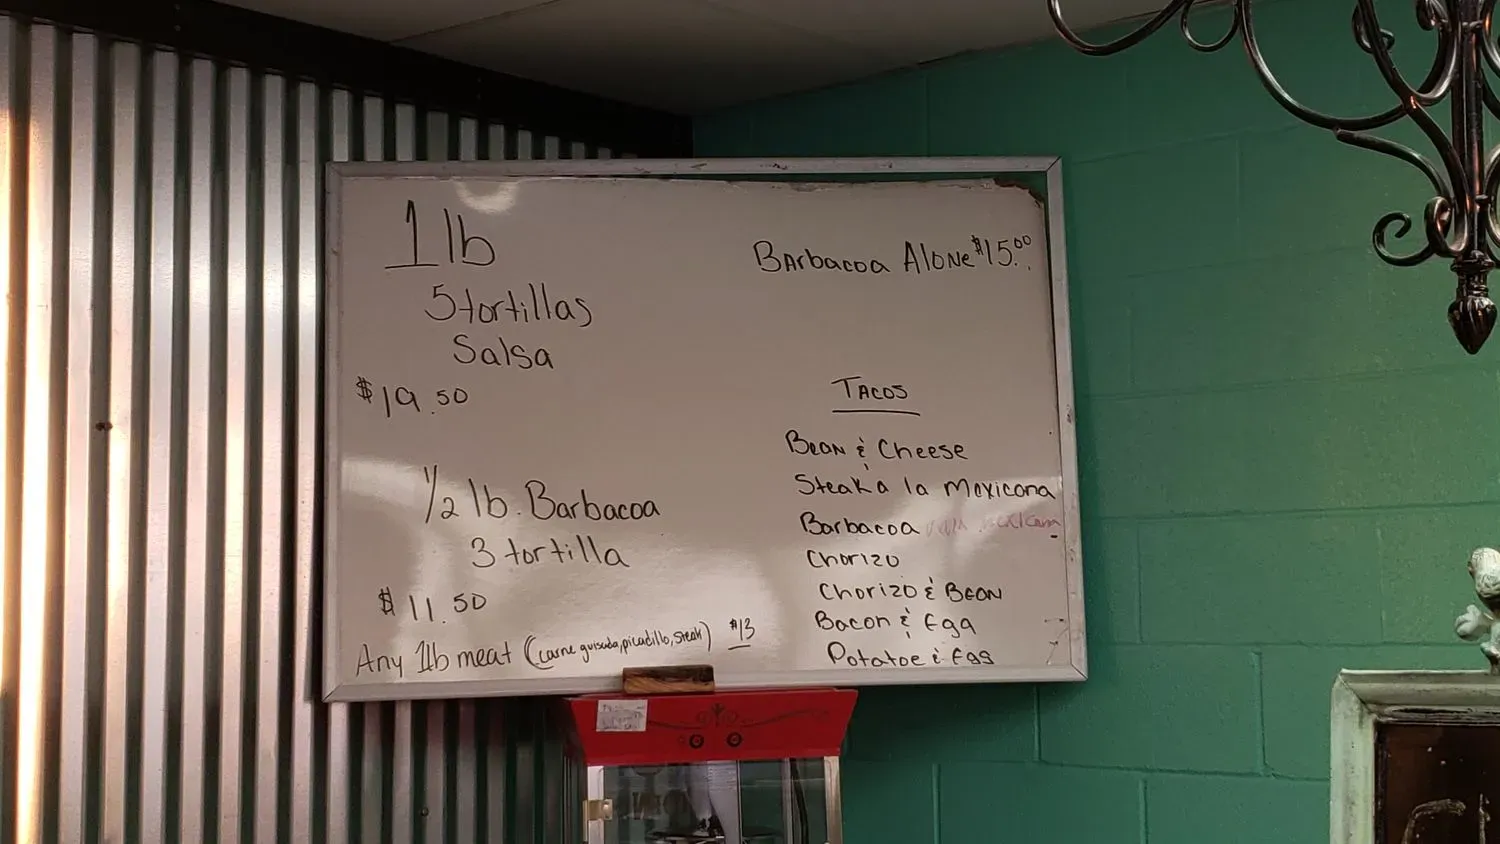 1 lb
5 tortillas
Salsa
$19.50
1/2 lb. Barbacoa
3 tortilla
$11.50
Any 1lb meat (carne guisada, picadillo, steak) $13
Barbacoa Alone $15.00
Tacos
Bean & Cheese
Steak a la Mexicana
Barbacoa
Chorizo
Chorizo & Bean
Bacon & Egg
Potatoe & Egg